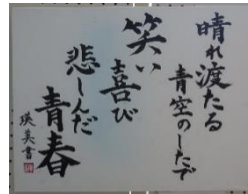 晴れ渡たる
青空のしたで
笑い喜び
悲しんだ
青春
瑛美書